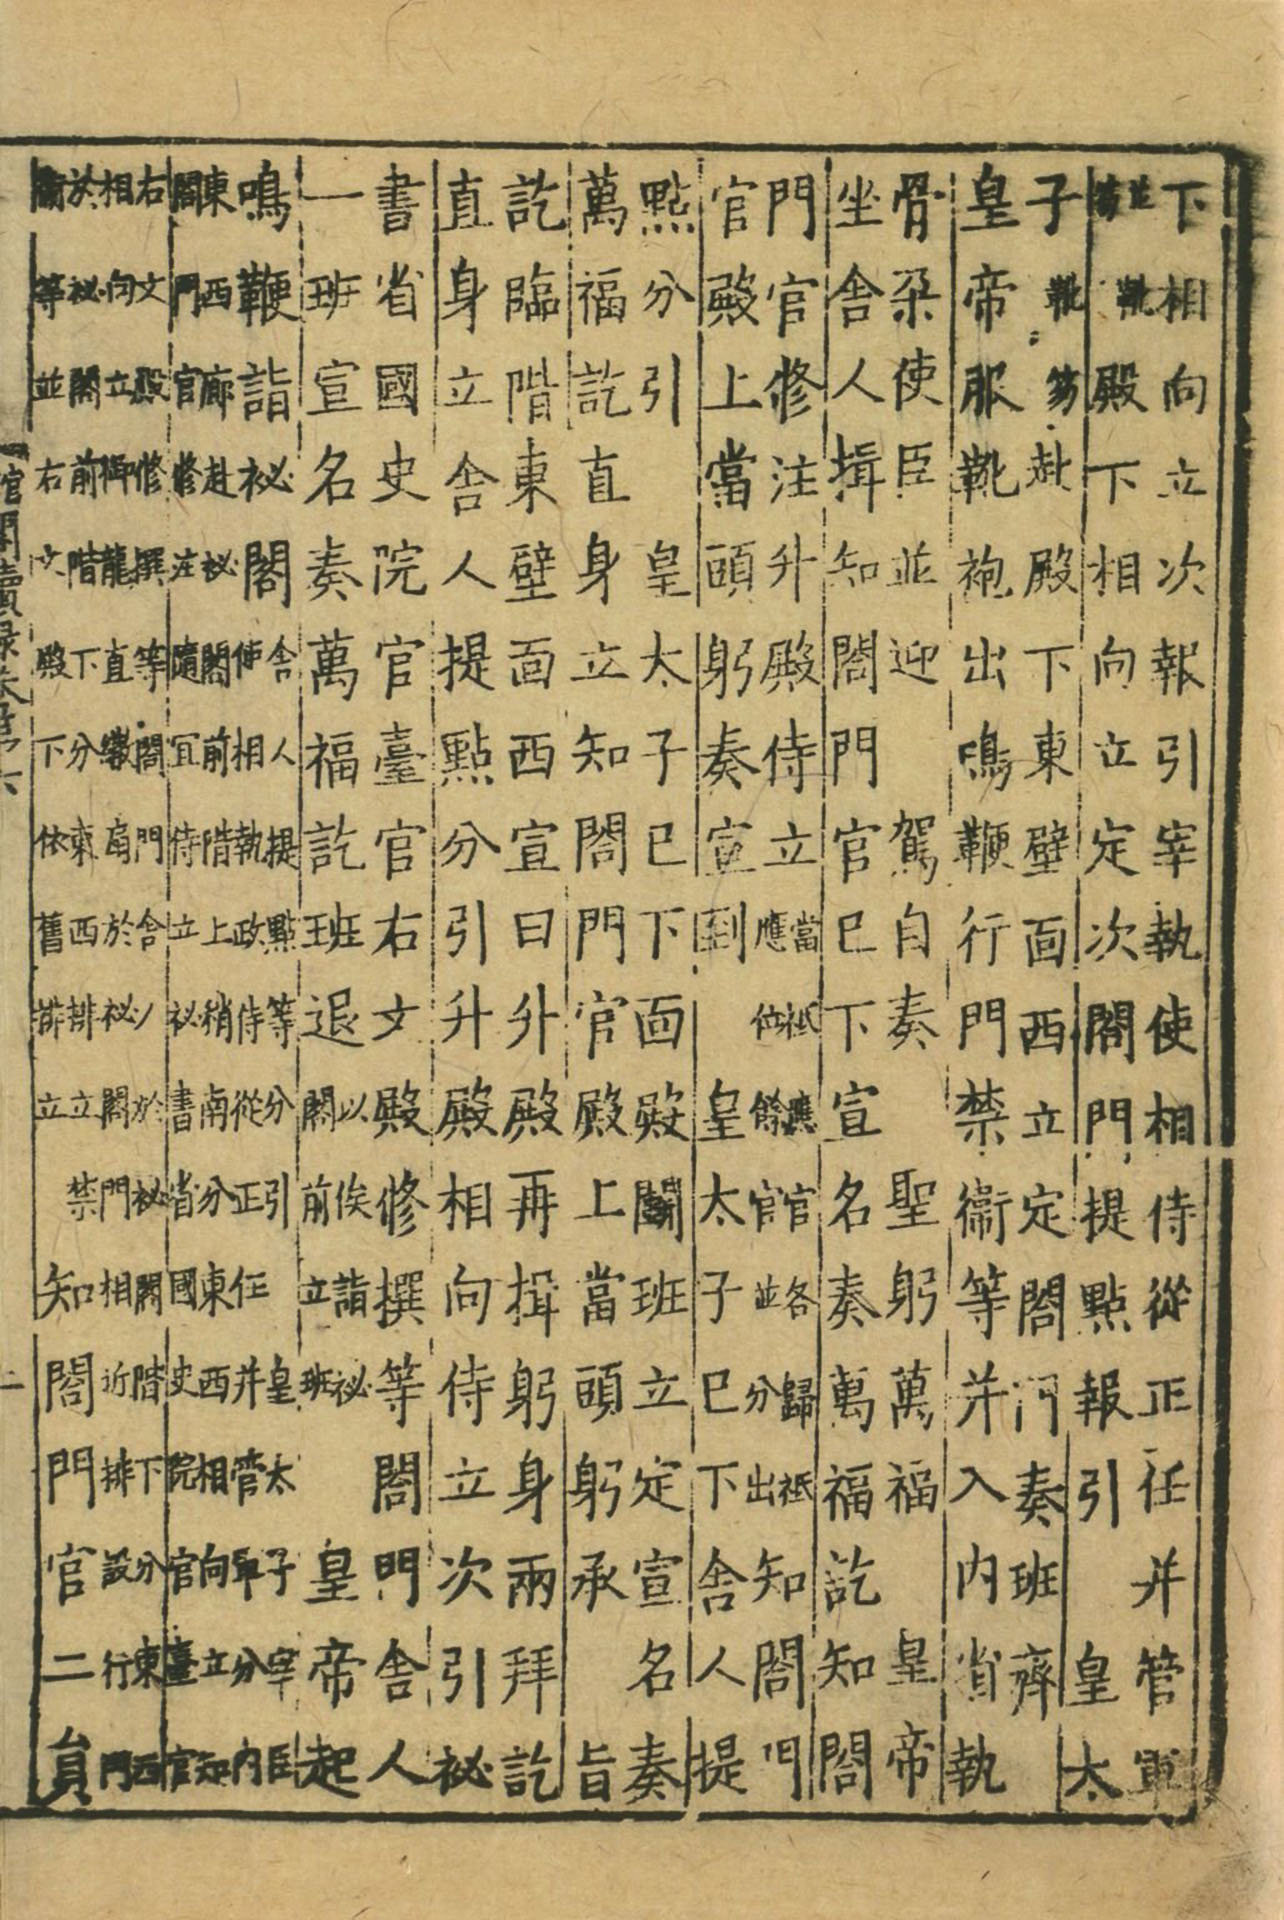 下相向立次報引宰執使相侍從正任并管軍
並靴笏殿下相向立定次閤門提點報引　皇太
子靴笏赴殿下東壁面西立定閤門奏班齊
皇帝服靴袍出鳴鞭行門禁衛等并入內省執
骨朵使臣並迎　駕自奏　聖躬萬福　皇帝
坐舍人揖知閤門官已下宣名奏萬福訖知閤
門官修注升殿侍立當祗應官各歸祗應位餘官並分出知閤門
官殿上當頭躬奏宣到　皇太子已下舍人提
點分引　皇太子已下面殿閣班立定宣名奏
萬福訖直身立知閤門官殿上當頭躬承　旨
訖臨階東壁面西宣曰升殿再揖躬身兩拜訖
直身立舍人提點分引升殿相向侍立次引祕
書省國史院官臺官右文殿修撰等閤門舍人
一班宣名奏萬福訖班退以俟詣祕閣前立班　皇帝起
鳴鞭詣祕閣舍人提點等分引皇太子宰臣使相執政侍從正任并管軍分內
東西廊赴祕閣前階上稍南分東西相向立知閤門官修注隨宜侍立祕書省國史院官臺官
右文殿修撰等閤門舍人於祕閣階下分東西相向立御龍直繖扇於祕閣門相近排設行門
於祕閣前階下分東西排立禁衛等並右文殿下依舊排立　知閤門官二員
館閣續錄卷第六